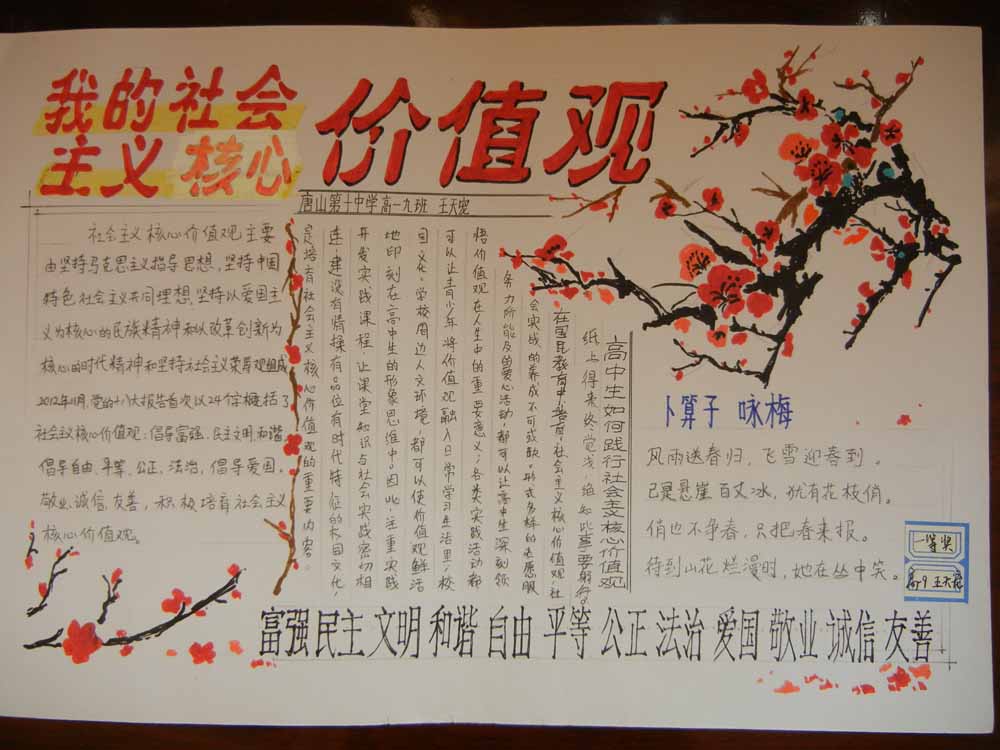 我的社会
主义 核心
价值观
唐山第十中学高一九班 王天宠
社会主义核心价值观主要
由坚持马克思主义指导思想,坚持中国
特色社会主义共同理想,坚持以爱国主
义为核心的民族精神和以改革创新为
核心的时代精神和坚持社会主义荣辱观组成
2012年11月,党的十八大报告首次以24个字概括了
社会主义核心价值观:倡导富强、民主、文明、和谐,
倡导自由、平等、公正、法治,倡导爱国、
敬业、诚信、友善,积极培育社会主义
核心价值观。
高中生如何践行社会主义核心价值观
纸上得来终觉浅,绝知此事要躬行。
在国民教育中培育社会主义核心价值观,社
会实践的养成不可或缺。形式多样的志愿服
务力所能及的爱心活动,都可以让高中生深刻领
悟价值观在人生中的重要意义;各类实践活动都
可以让青少年将价值观融入日常学习生活里;校
园文化、学校周边人文环境,都可以使价值观鲜活
地印刻在高中生的形象思维中。因此,注重实践
开发实践课程,让课堂知识与社会实践密切相
连,建设有情操有品位有时代特征的校园文化,
是培育社会主义核心价值观的重要内容。
卜算子 咏梅
风雨送春归,飞雪迎春到。
已是悬崖百丈冰,犹有花枝俏。
俏也不争春,只把春来报。
待到山花烂漫时,她在丛中笑。
一等奖
高一9 王天宠
富强 民主 文明 和谐 自由 平等 公正 法治 爱国 敬业 诚信 友善